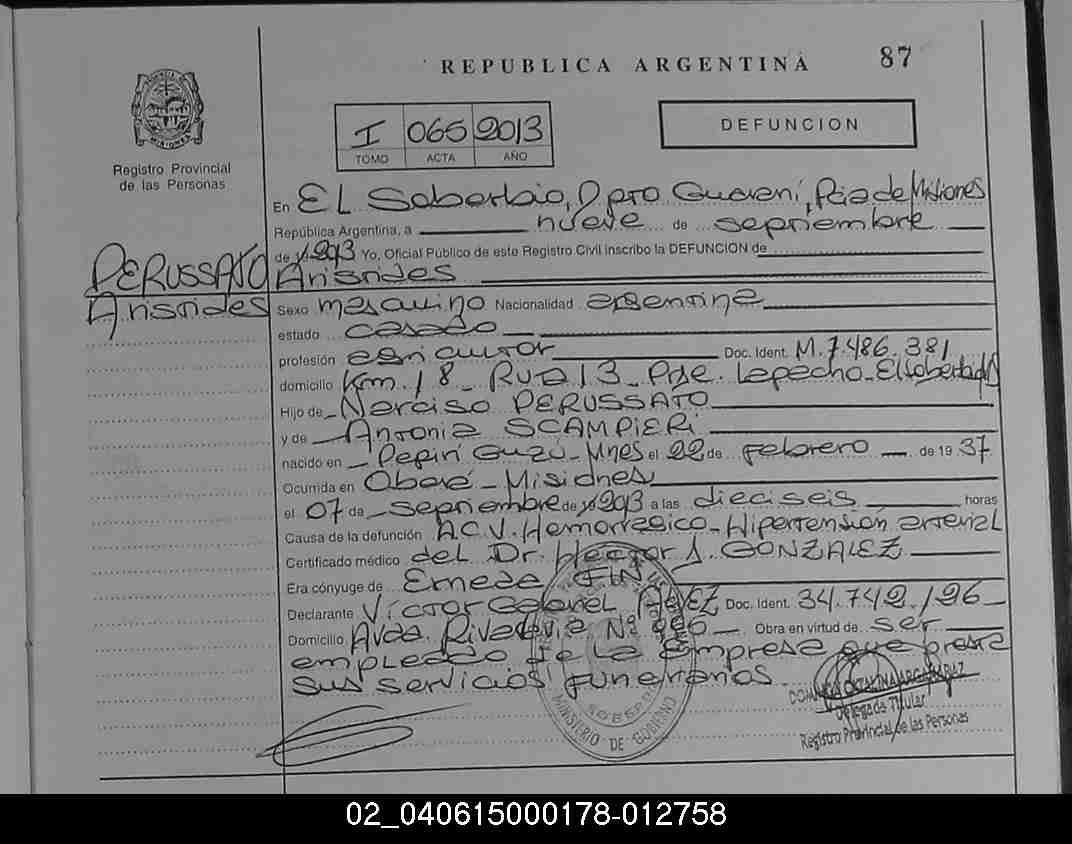 REPUBLICA ARGENTINA 87
I 065 2013
TOMO ACTA AÑO
DEFUNCION
Registro Provincial
de las Personas
En El Soberbio, Dpto Guaraní, Pcia de Misiones
República Argentina, a nueve de septiembre
de 2013 Yo, Oficial Público de este Registro Civil inscribo la DEFUNCION de
PERUSSATO
Aristides
Aristides
Sexo masculino Nacionalidad argentina
estado casado
profesión agricultor Doc. Ident. M. 7.486.381
domicilio Km. 18 - Ruta 13 - Pje. Lapacho - El Soberbio
Hijo de Narciso PERUSSATO
y de Antonia SCAMPIERI
nacido en Pepiri Guazú - Mnes el 22 de Febrero de 19 37
Ocurrida en Oberá - Misiones
el 07 de septiembre de 2013 a las dieciseis horas
Causa de la defunción A.C.V. Hemorragico - Hipertension arterial
Certificado médico del Dr. Hector J. GONZALEZ
Era cónyuge de Emede FIN
Declarante Victor Gabriel Doc. Ident. 34.742.126
Domicilio Avda. Rivadavia Nº Obra en virtud de ser
empleado de la Empresa que presta
sus servicios funerarios.
MINISTERIO DE GOBIERNO
Delegada Titular
Registro Provincial de las Personas
02_040615000178-012758